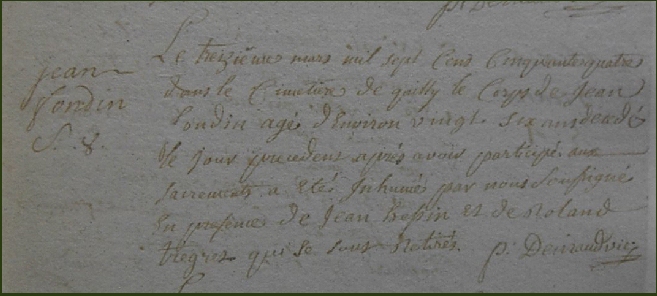 jean
Londin
S. 8.
Le treizieme mars mil sept cens cinquante quatre
dans le Cimetiere de le Corps de Jean
Londin agé d'Environ vingt six ans decedé
le jour precedent après avoir participé aux
sacrements a etés Inhumé par nous soussigné
En presence de Jean et de Roland
qui se sont retirés. p.